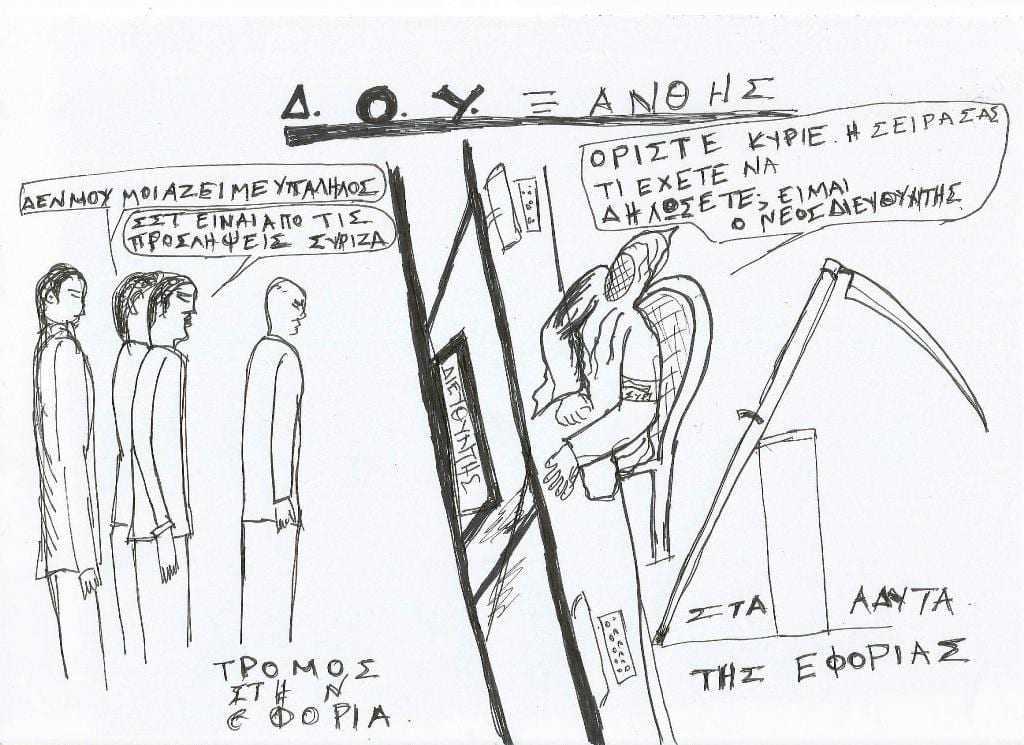 Δ. Ο. Υ. ΞΑΝΘΗΣ
ΔΕΝ ΜΟΥ ΜΟΙΑΖΕΙ ΜΕ ΥΠΑΛΗΛΟΣ
ΣΣΤ ΕΙΝΑΙ ΑΠΟ ΤΙΣ
ΠΡΟΣΛΗΨΕΙΣ ΣΥΡΙΖΑ
ΟΡΙΣΤΕ ΚΥΡΙΕ. Η ΣΕΙΡΑ ΣΑΣ
ΤΙ ΕΧΕΤΕ ΝΑ
ΔΗΛΩΣΕΤΕ; ΕΙΜΑΙ
Ο ΝΕΟΣ ΔΙΕΥΘΥΝΤΗΣ
ΔΙΕΥΘΥΝΤΗΣ
ΣΥΡΙ
ΤΡΟΜΟΣ
ΣΤΗΝ
ΕΦΟΡΙΑ
ΣΤΑ ΑΔΥΤΑ
ΤΗΣ ΕΦΟΡΙΑΣ